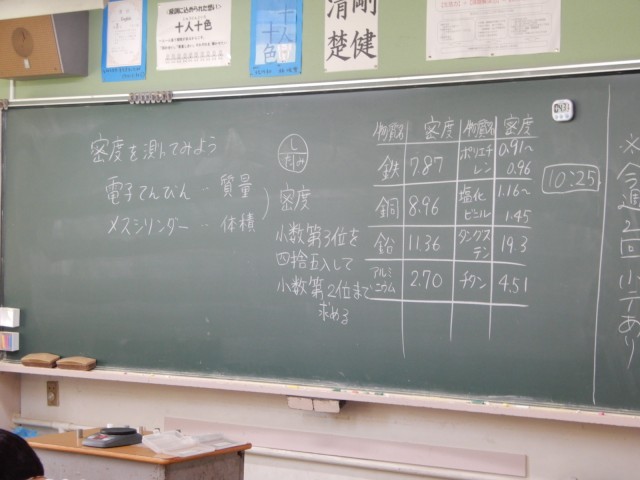 十人十色
十人十色
清楚
剛健
密度を測ってみよう
電子てんびん・・質量
メスシリンダー・・体積
密度
小数第3位を
四捨五入して
小数第2位まで
求める
し
物質名 密度 物質名 密度
鉄 7.87 ポリエチレン 0.91〜0.96
銅 8.96 塩化ビニル 1.16〜1.45
鉛 11.36 タングステン 19.3
アルミニウム 2.70 チタン 4.51
10:25
※今週2回小テあり